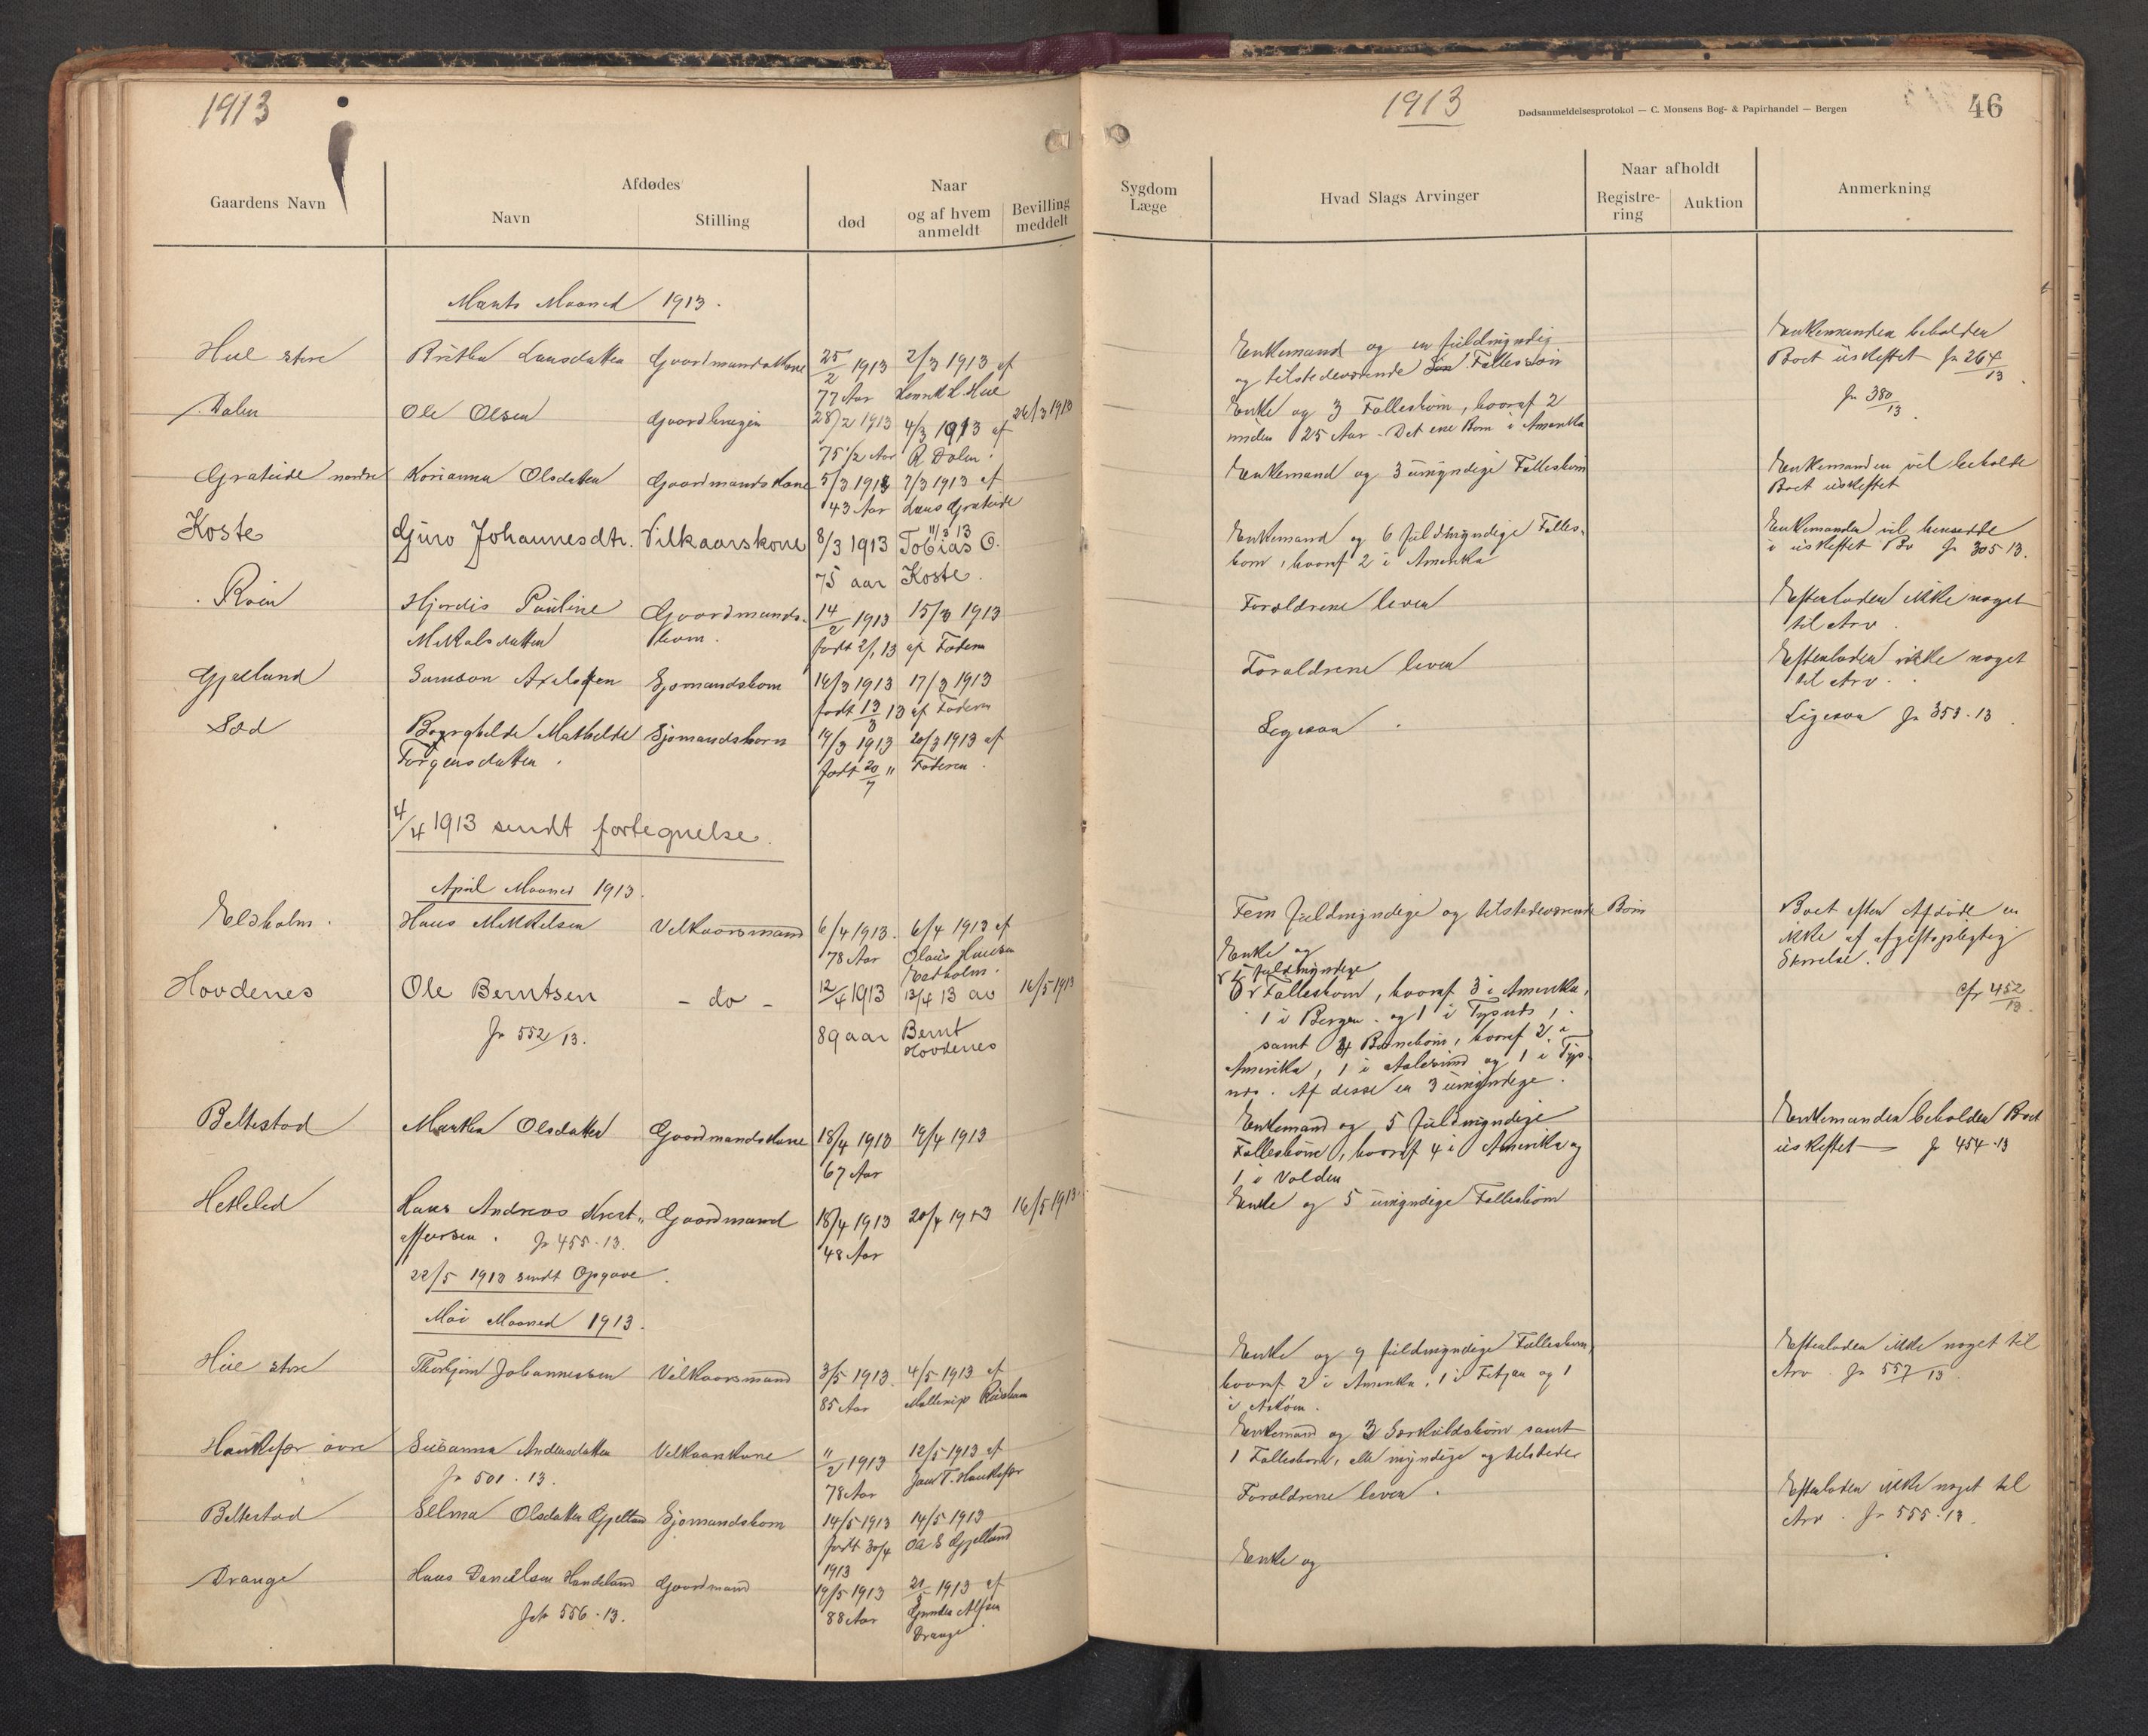 1913
1913
Dødsanmeldelsesprotokol — C. Monsens Bog- & Papirhandel — Bergen
46
Gaardens Navn
Afdødes
Navn
Stilling
Naar
død
og af hvem
anmeldt
Bevilling
meddelt
Sygdom
Læge
Hvad Slags Arvinger
Naar afholdt
Registre-
ring
Auktion
Anmerkning
Marts Maaned 1913.
Hue store
Britha Larsdatter
Gaardmandskone
25/2 1913
77 Aar
2/3 1913 af
Hue
Enkemand og en fuldmyndig
og tilstedeværende Søn Fællessøn
Enkemanden beholder
Boet uskiftet Jr 264/13
Jr 380/13.
Dalen
Ole Olsen
Gaardbruger
28/2 1913
75 1/2 Aar
4/3 1913 af
R Dalen.
26/3 1913
Enke og 3 Fællesbørn, hvoraf 2
under 25 Aar - Det ene Barn i Amerika
Grateide nordre
Korianna Olsdatter
Gaardmandskone
5/3 1913
43 Aar
7/3 1913 af
Lars Grateide
Enkemand og 3 umyndige Fællesbørn
Enkemanden vil beholde
Boet uskiftet
Koste
Guro Johannesdtr.
Vilkaarskone
8/3 1913
75 aar
11/3 13
Tobias O.
Koste.
Enkemand og 6 fuldmyndige Fælles-
børn, hvoraf 2 i Amerika
Enkemanden vil hensidde
i uskiftet Bo Jr 305 13.
Røen
Hjørdis Pauline
Mikkalsdatter
Gaardmands-
barn.
14/2 1913
født 2/1 13
15/3 1913
af Faderen
Forældrene lever
Efterlader ikke noget
til Arv.
Gjælland
Samson Axelsen
Sjømandsbarn
16/3 1913
født 13/3 13
17/3 1913
af Faderen
Forældrene lever
Efterlader ikke noget
til Arv.
Sæd
Borghilde Mathilde
Torgersdatter.
Sjømandsbarn
19/3 1913
født 20/7 "
20/3 1913 af
Faderen.
Ligesaa.
Ligesaa Jr 353-13.
4/4 1913 sendt fortegnelse.
April Maaned 1913.
Eldholm.
Hans Mikkelsen
Vilkaarsmand
6/4 1913.
78 Aar
6/4 1913 af
Olaus Hansen
Eldholm.
Fem fuldmyndige og tilstedeværende Børn
Boet efter Afdøde er
ikke af afgiftspligtig
Størrelse.
Hovdenes
Ole Berntsen
Jr 552/13.
- do -
12/4 1913
89 aar
13/4 13 av
Bernt
Hovdenes
16/5 1913
Enke og
5 fuldmyndige
Fællesbørn, hvoraf 3 i Amerika,
1 i Bergen og 1 i Tysnes,
samt 4 Barnebørn, hvoraf 2 i
Amerika, 1 i Aalesund og 1 i Tys-
nes. Af disse er 3 umyndige.
cfr 452/13.
Beltestad
Martha Olsdatter
Gaardmandskone
18/4 1913
67 Aar
19/4 1913
Enkemand og 5 fuldmyndige
Fællesbørn, hvoraf 4 i Amerika og
1 i Volden
Enkemanden beholder Boet
uskiftet Jr 454-13
Hetleled
Hans Andreas Krist-
offersen. Jr 455-13.
Gaardmand
18/4 1913
48 Aar
20/4 1913
16/5 1913.
Enke og 5 umyndige Fællesbørn
22/5 1913 sendt Opgave.
Mai Maaned 1913.
Hue store
Thorbjørn Johannessen
Vilkaarsmand
3/5 1913.
85 Aar
4/5 1913 af
Enke og 9 fuldmyndige Fællesbørn,
hvoraf 2 i Amerika, 1 i Fitjar og 1
i
Efterlader ikke noget til
Arv. Jr 557/13.
Haukefær øvre
Susanna Andersdatter
Jr 501-13.
Vilkaarskone
11/2 1913
78 Aar
12/5 1913 af
T. Haukefær
Enkemand og 3 Særkuldsbørn samt
1 Fællesbarn, alle myndige og tilstede
Beltestad
Selma Olsdatter Gjelland
Sjømandsbarn
14/5 1913
født 30/4
1913
14/5 1913
Ole E Gjelland
Forældrene lever.
Efterlader ikke noget til
Arv. Jr 555-13.
Drange
Hans Danielsen Handeland
Jr 556-13.
Gaardmand
19/5 1913
88 Aar
21/5 1913 af
Drange
Enke og